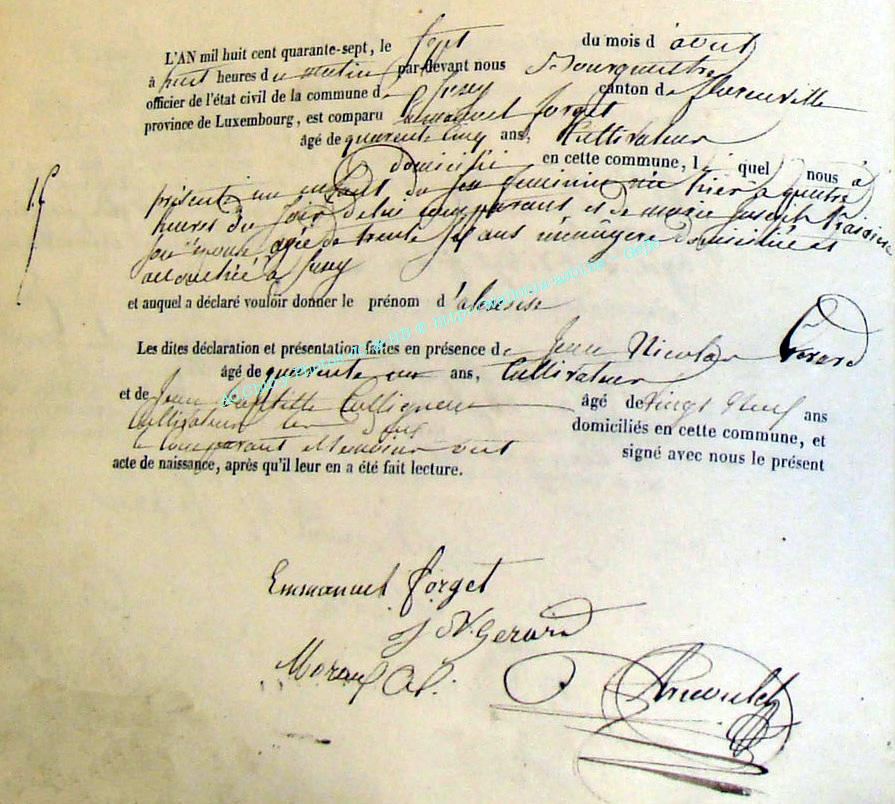 L'AN mil huit cent quarante-sept, le sept du mois d'avril
à huit heures du matin par-devant nous Bourguestre
officier de l'état civil de la commune de canton de Florenville
province de Luxembourg, est comparu Emmanuel Forget
âgé de quarente cinq ans, Cultivateur
domicilié en cette commune, l quel nous à
présenté un enfant du sexe féminin né hier à quatre
heures du soir de lui comparant et de marie Joseph
son agée de trente six ans ménagère domiciliée et
à
et auquel a déclaré vouloir donner le prénom d'
Les dites déclaration et présentation faites en présence de Jean Nicolas Gerard
âgé de quarente un ans, Cultivateur
et de Jean Baptiste Collignon âgé de vingt neuf ans
Cultivateur domiciliés en cette commune, et
le Comparant et ont signé avec nous le présent
acte de naissance, après qu'il leur en a été fait lecture.
15
Emmanuel Forget
J N. Gerard